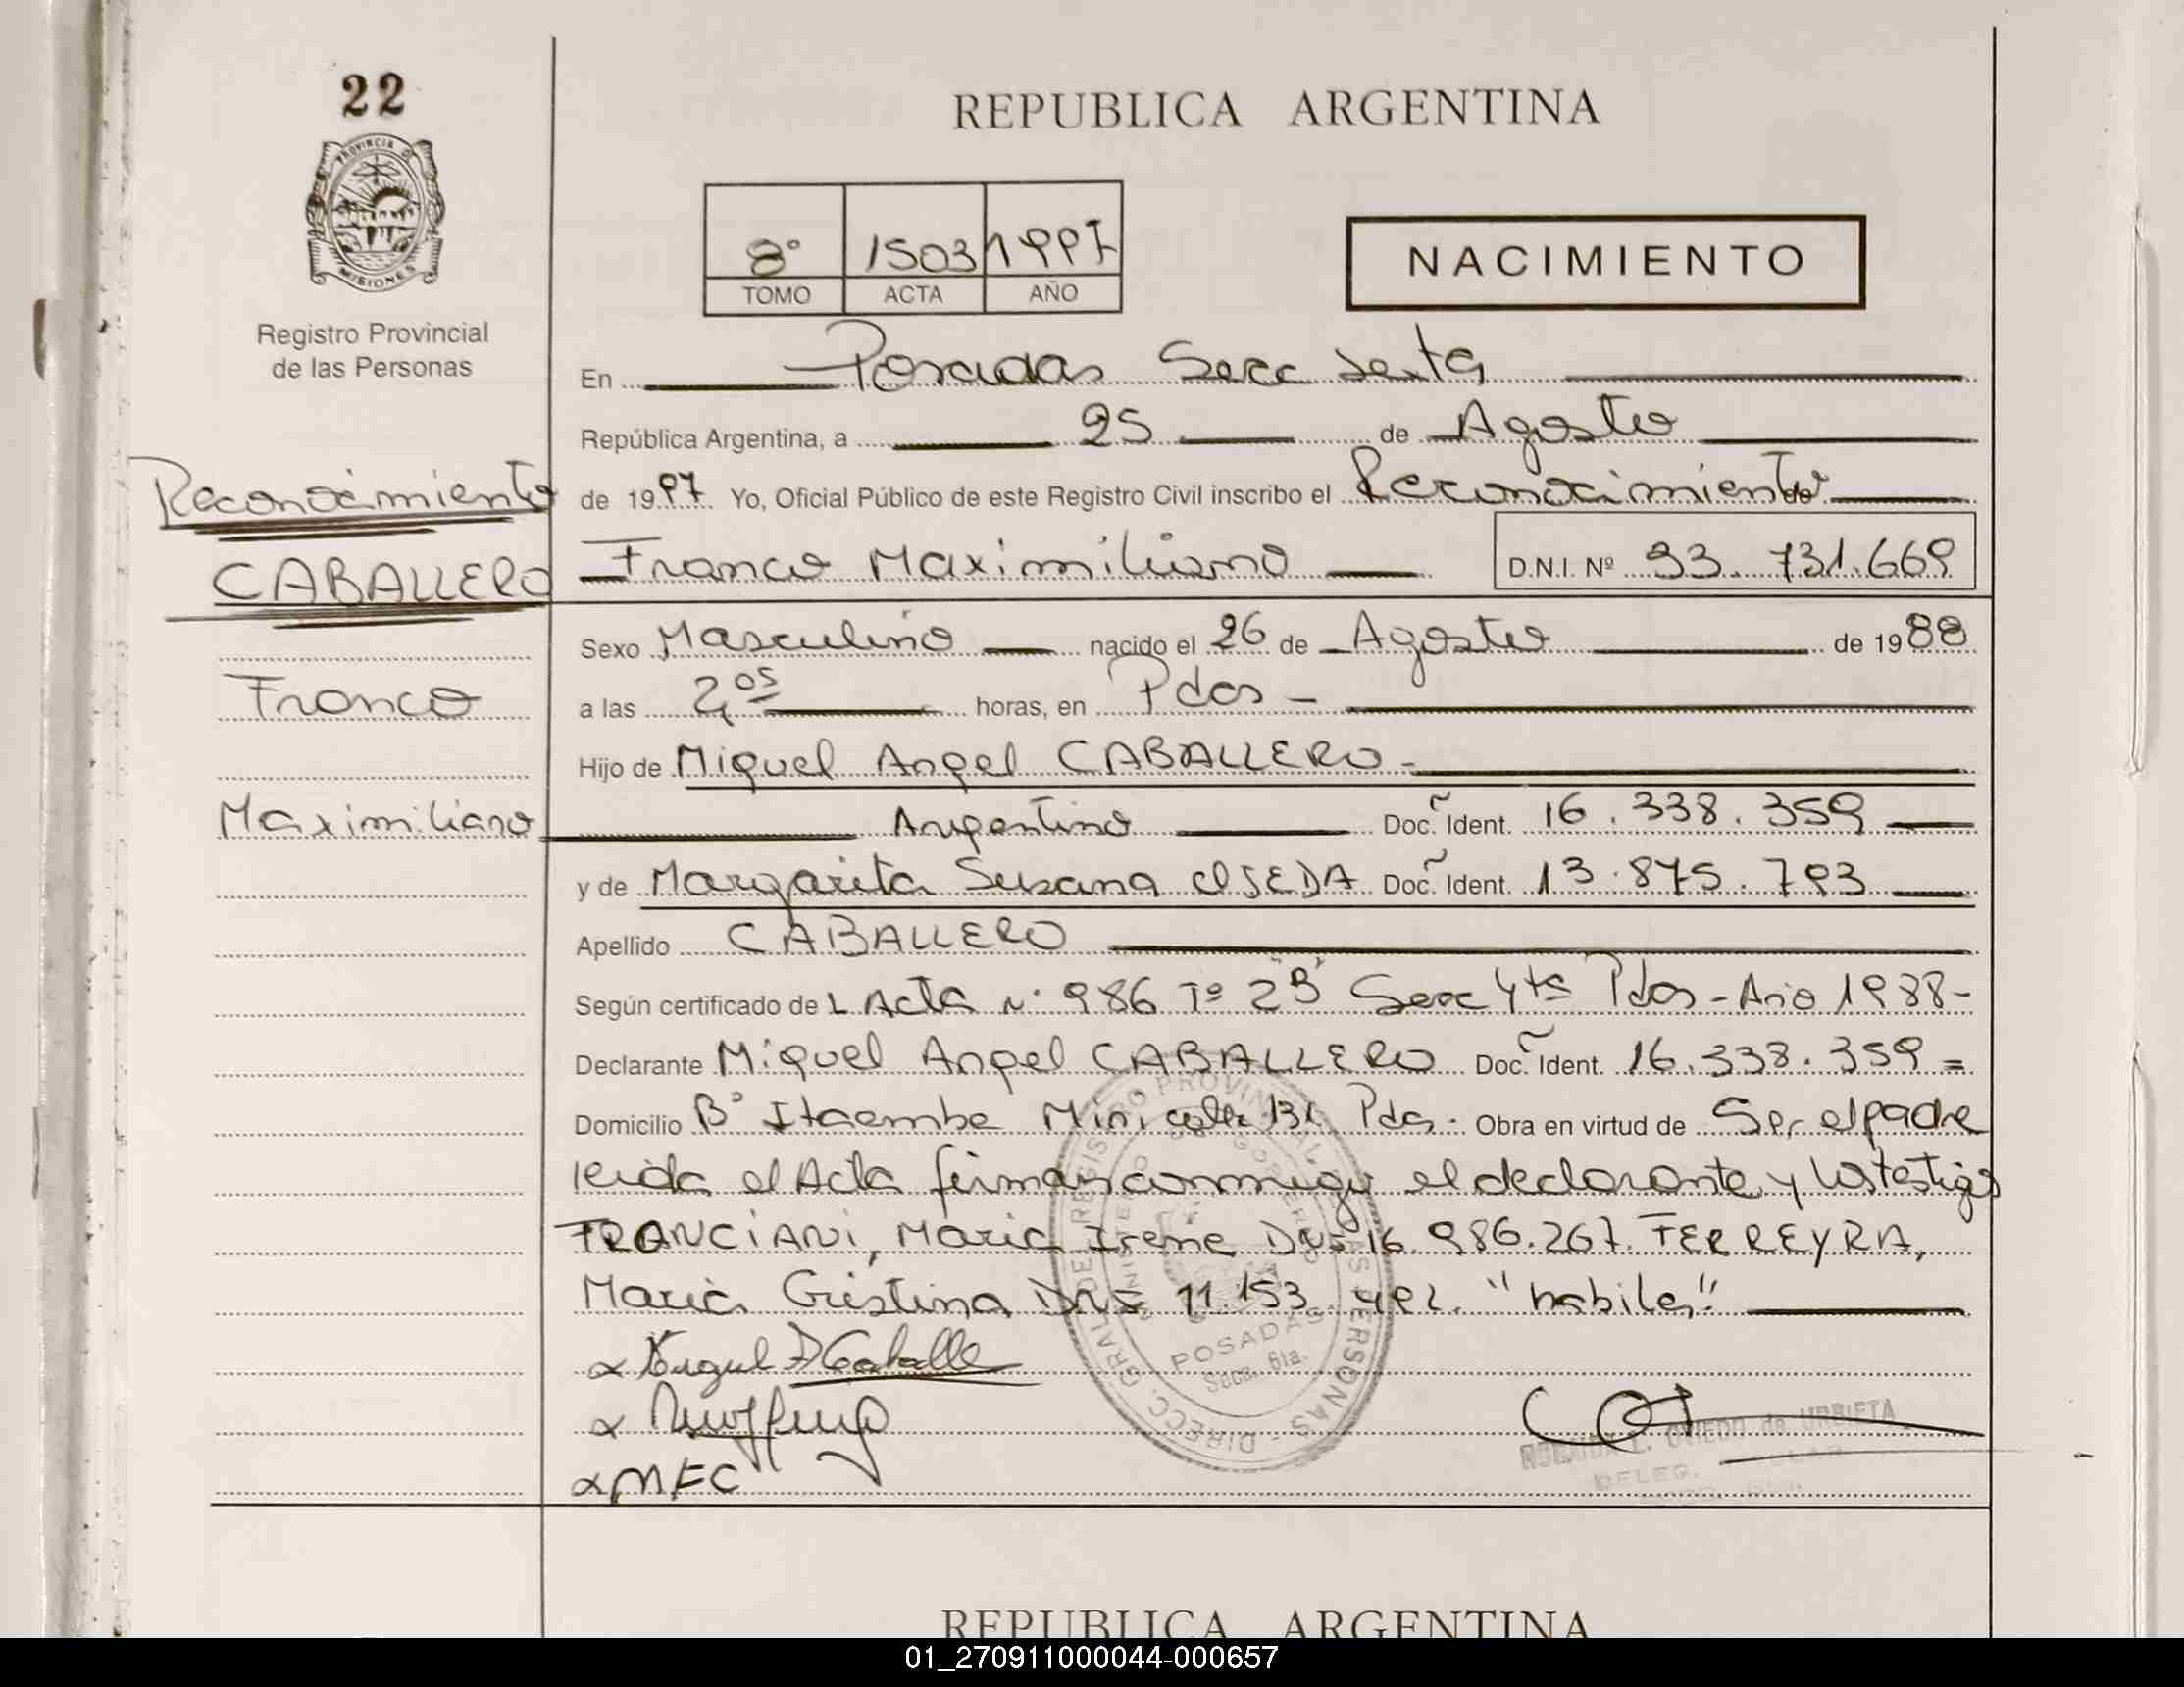 22
REPUBLICA ARGENTINA
PROVINCIA D
MISIONES
8° 1503 1997
TOMO ACTA AÑO
NACIMIENTO
Registro Provincial
de las Personas
En Posadas Secc Sexta
República Argentina, a 25 de Agosto
Reconocimiento
de 1997 Yo, Oficial Público de este Registro Civil inscribo el Reconocimiento
CABALLERO
Franco Maximiliano D.N.I. Nº 33.731.669
Sexo Masculino nacido el 26 de Agosto de 1988
Franco
a las 2,05 horas, en Pdas -
Hijo de Miguel Angel CABALLERO -
Maximiliano
Argentino Doc. Ident. 16.338.359
y de Margarita Susana OJEDA Doc. Ident. 13.875.793
Apellido CABALLERO
Según certificado de L Acta N° 986 Tº 2B Secc 4ta Pdas - Año 1988 -
Declarante Miguel Angel CABALLERO Doc. Ident. 16.338.359 =
Domicilio B° Itaembe Mini calle 131 Pdas. Obra en virtud de Ser el padre
leida el Acta firman conmigo el declarante y los testigos
FRANCIANI, Maria Irene DNI 16.986.267. FERREYRA,
Maria Cristina DNI 11.153. "habiles"
POSADAS
Secc. 6ta.
x Miguel A Caballe
x MFC
OVIEDO de URBIETA
DELEG.
REPUBLICA ARGENTINA
01_270911000044-000657